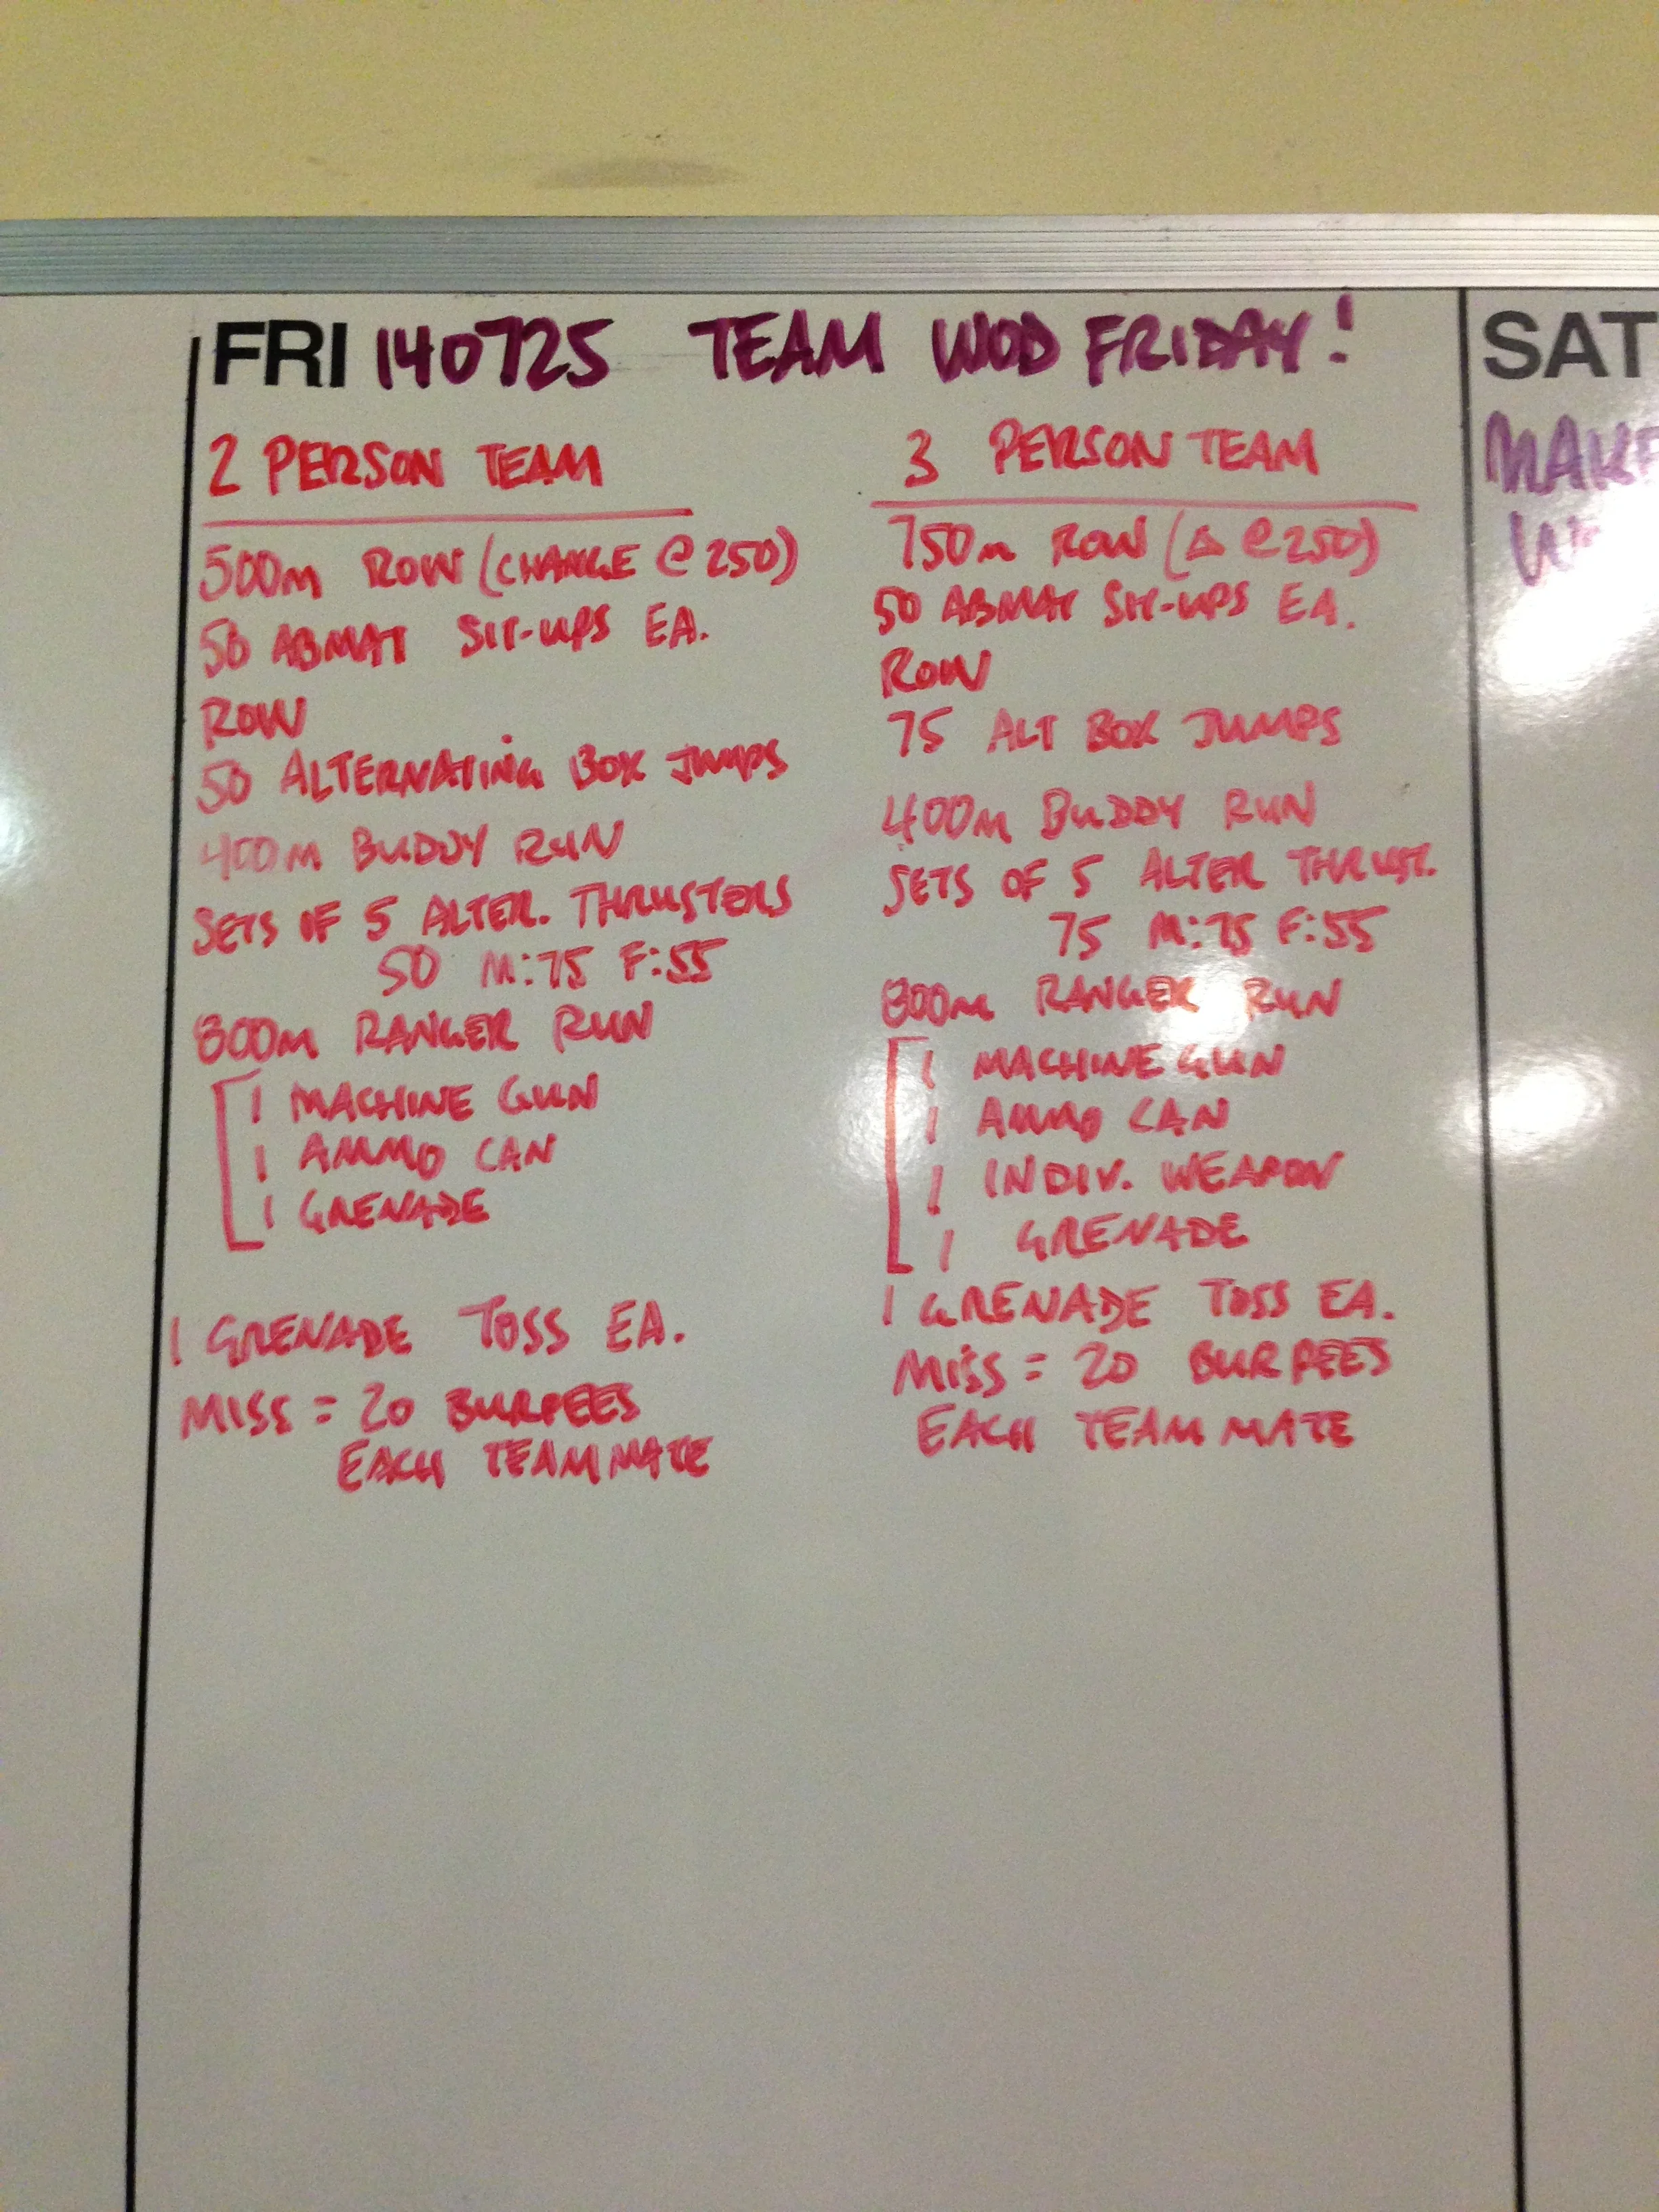 FRI 140725 TEAM WOD FRIDAY!
2 PERSON TEAM
500m ROW (CHANGE @ 250)
50 ABMAT SIT-UPS EA.
ROW
50 ALTERNATING BOX JUMPS
400m BUDDY RUN
SETS OF 5 ALTER. THRUSTERS
50 M:75 F:55
800m RANGER RUN
1 MACHINE GUN
1 AMMO CAN
1 GRENADE
1 GRENADE TOSS EA.
MISS = 20 BURPEES
EACH TEAMMATE
3 PERSON TEAM
750m ROW (Δ @ 250)
50 ABMAT SIT-UPS EA.
ROW
75 ALT BOX JUMPS
400m BUDDY RUN
SETS OF 5 ALTER THRUST.
75 M:75 F:55
800m RANGER RUN
1 MACHINE GUN
1 AMMO CAN
1 INDIV. WEAPON
1 GRENADE
1 GRENADE TOSS EA.
MISS = 20 BURPEES
EACH TEAMMATE
SAT